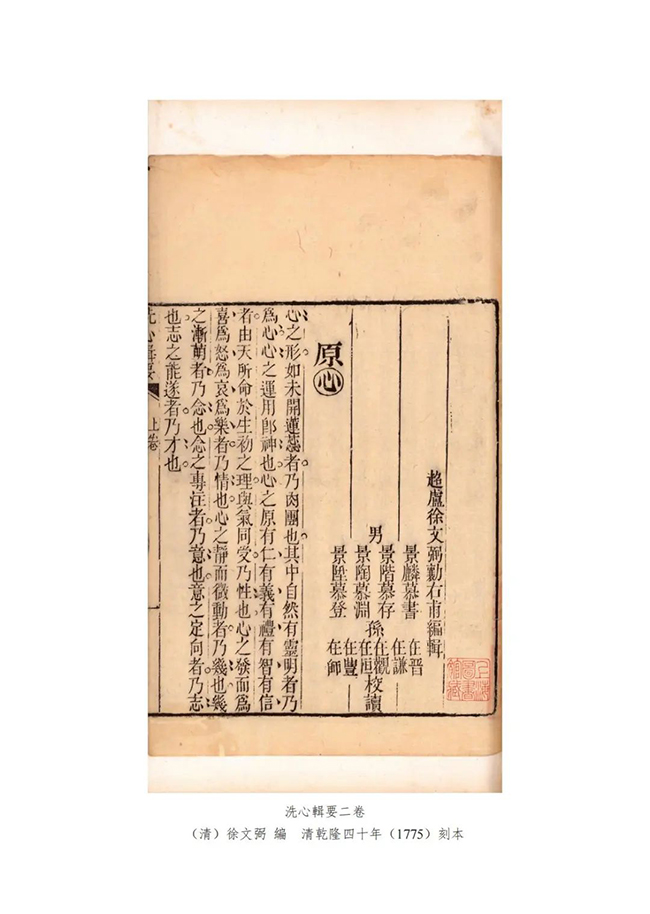 超廬徐文弼勷右甫編輯
上海圖書館藏
男
景麟慕書
景階慕存
景陶慕淵
景陞慕登
孫
在晉
在謙
在觀
在恒
在豐
在師
校讀
原心
心之形如未開蓮蕊者乃肉團也其中自然有靈明者乃
爲心心之運用卽神也心之原有仁有義有禮有智有信
者由天所命於生初之理與氣同受乃性也心之發而爲
喜爲怒爲哀爲樂者乃情也心之靜而微動者乃幾也幾
之漸萌者乃念也念之專注者乃意也意之定向者乃志
也志之能遂者乃才也
洗心輯要 上卷
洗心輯要二卷
（清）徐文弼 編 清乾隆四十年（1775）刻本